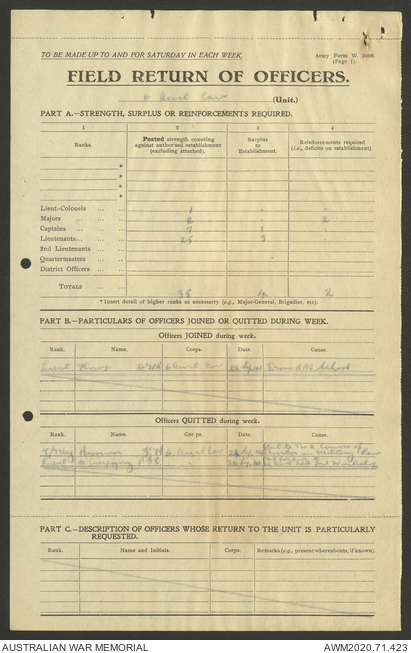 TO BE MADE UP TO AND FOR SATURDAY IN EACH WEEK.
Army Form W.
(Page 1).
FIELD RETURN OF OFFICERS.
6 Aust Cav (Unit.)
PART A.—STRENGTH, SURPLUS OR REINFORCEMENTS REQUIRED.
1 2 3 4
Ranks. Posted strength counting against authorised establishment (excluding attached). Surplus to Establishment. Reinforcements required (i.e., deficits on establishment).
*
*
*
*
Lieut.-Colonels ... ... 1 - -
Majors ... ... - 2
Captains ... ... 7 1
Lieutenants... ... 25 3
2nd Lieutenants ...
Quartermasters ... -
District Officers ...
TOTALS ... 35 2
* Insert detail of higher ranks as necessary (e.g., Major-General, Brigadier, etc).
PART B.—PARTICULARS OF OFFICERS JOINED OR QUITTED DURING WEEK.
Officers JOINED during week.
Rank. Name. Corps. Date. Cause.
Lieut 6 Aust Cav From School
Officers QUITTED during week.
Rank. Name. Corps. Date. Cause.
6 Aust Cav
Lieut
PART C.—DESCRIPTION OF OFFICERS WHOSE RETURN TO THE UNIT IS PARTICULARLY
REQUESTED.
Rank. Name and Initials. Corps. Remarks (e.g., present whereabouts, if known).
AUSTRALIAN WAR MEMORIAL AWM2020.71.423